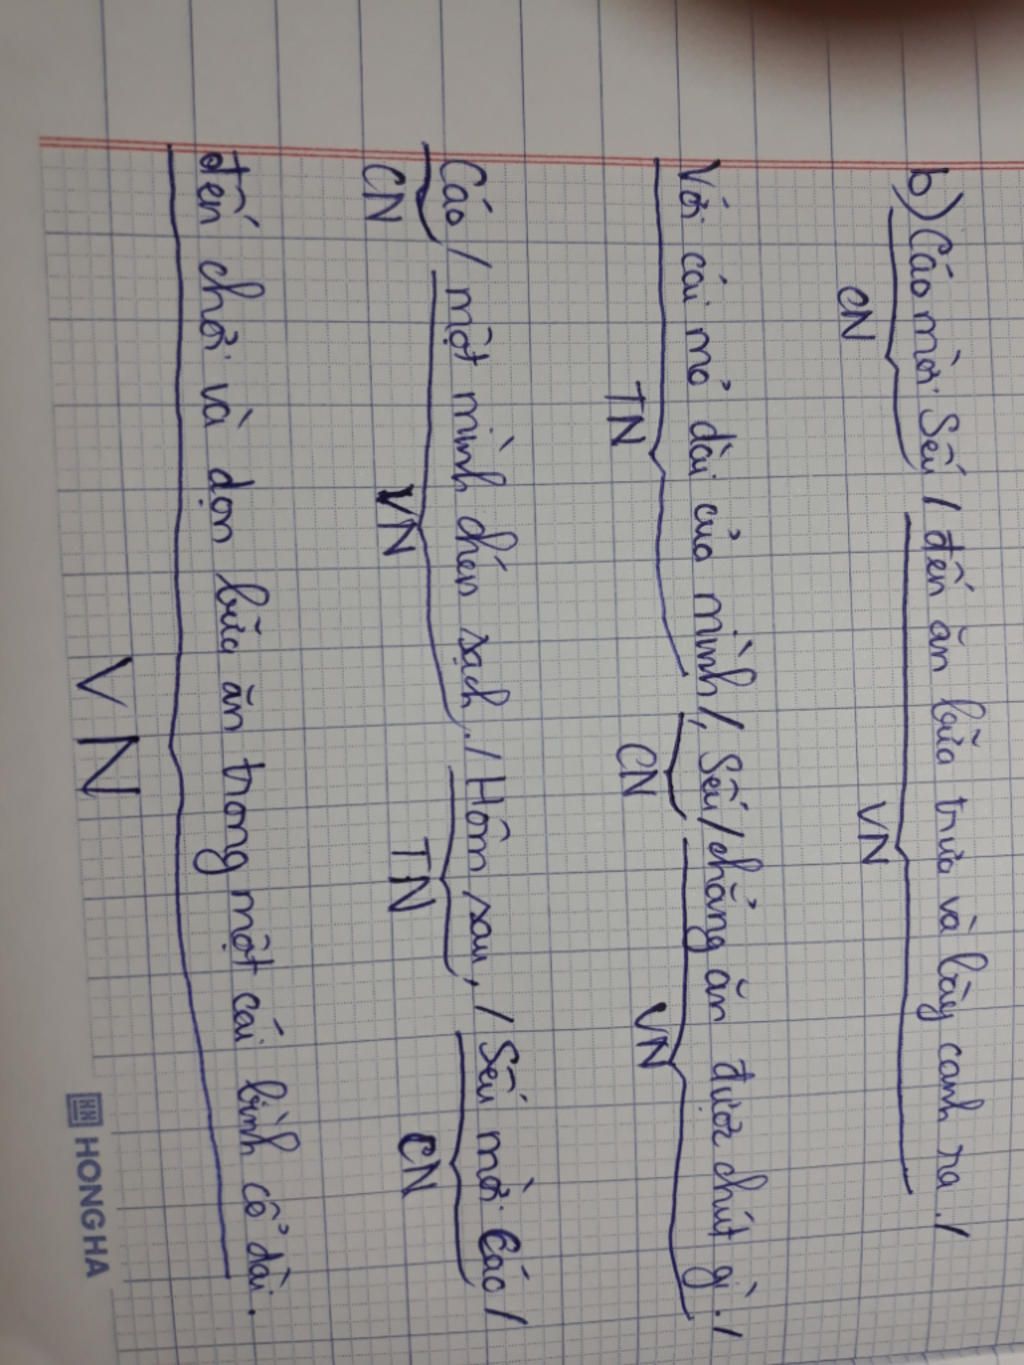 b) Cáo mời Sếu / đến ăn bữa trưa và bày canh ra. /
CN VN
Với cái mỏ dài của mình /, Sếu / chẳng ăn được chút gì. /
TN CN VN
Cáo / một mình chén sạch. / Hôm sau, / Sếu mời Cáo /
CN VN TN CN
đến chơi và dọn bữa ăn trong một cái bình cổ dài.
VN
HONG HA